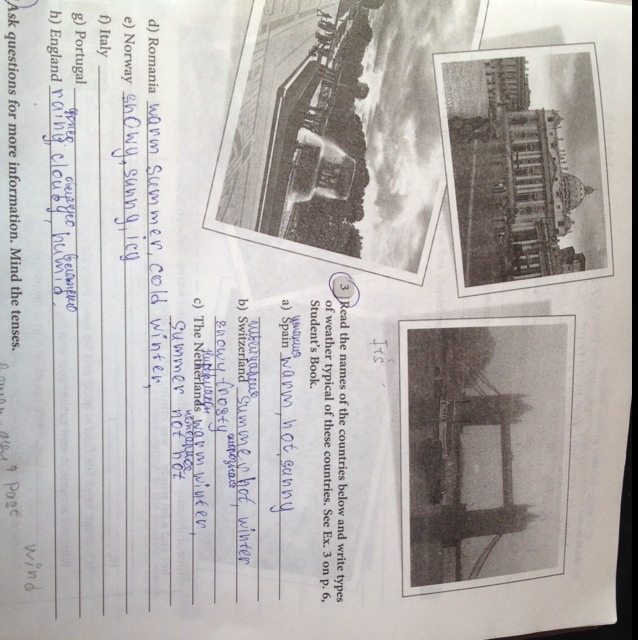 It's
3 Read the names of the countries below and write types
of weather typical of these countries. See Ex. 3 on p. 6,
Student's Book.
a) Spain warm, hot, sunny
b) Switzerland summer hot, winter
snowy frosty
c) The Netherlands warm winter,
summer not hot
d) Romania warm summer, cold winter,
e) Norway snowy, sunny, icy
f) Italy
g) Portugal
h) England rainy, cloudy, humid.
Ask questions for more information. Mind the tenses.
past wind